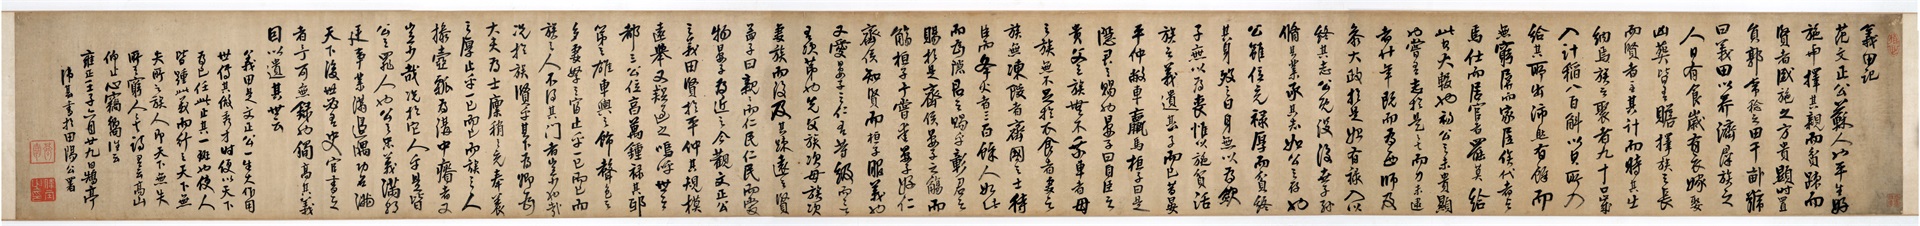 義田記
范文正公蘇人也平生好
施與擇其親而貧疏而
賢者咸施之方貴顯時置
負郭常稔之田千畝號
曰義田以養濟羣族之
人日有食歲有衣嫁娶
凶葬皆有贍擇族之長
而賢者主其計而時其出
納焉族之聚者九十口歲
入計稻八百斛以其所入
給其所聚沛然有餘而
無窮屏而家居俟代者與
焉仕而居官者罷莫給
此其大較也初公之未貴顯
也嘗有志於是矣而力未逮
者廿年既而為西帥及
參大政於是始有祿入以
終其志公既歿後世子孫
脩其業承其志如公之存也
公雖位充祿厚而貧終
其身歿之日身無以為斂
子無以為喪惟以施貧活
族之義遺其子而已昔晏
平仲敝車羸馬桓子曰是
隱君之賜也晏子曰自臣之
貴父之族無不乘車者母
之族無不足於衣食者妻之
族無凍餒者齊國之士待
臣而舉火者三百餘人如此
而為隱君之賜乎彰君之
賜乎於是齊侯以晏子之觴而
觴桓子予嘗愛晏子好仁
齊侯知賢而桓子服義也
又愛晏子之仁有等級而言
有次第也先父族次母族次
妻族而後及其疏遠之賢
孟子曰親親而仁民仁民而愛
物晏子為近之今觀文正公
之義田賢於平仲其規模
遠舉又疑過之嗚呼世之
都三公位享萬鍾祿其邸
第之雄車輿之飾聲色之
多妻孥之富止乎一己而已而
族之人不得其門者豈少也哉
況於施賢乎其下為卿為
大夫為士廩稍之充奉養
之厚止乎一己而已而族之人
操壺瓢為溝中瘠者又
豈少哉況於它人乎是皆
公之罪人也公之忠義滿朝
廷事業滿邊隅功名滿
天下後世必有史官書之
者予可無錄也獨高其義
因以遺其世云
義田是文正公一生之作用
世傳其做秀才時便以天下
為己任此止其一班也使人人
皆踵此義而行之天下無
失所之族人即天下無失
所之窮人三十詩云高山
仰止心竊嚮往之
雍正壬子六月廿九日頫亭
沛書於田陽公署